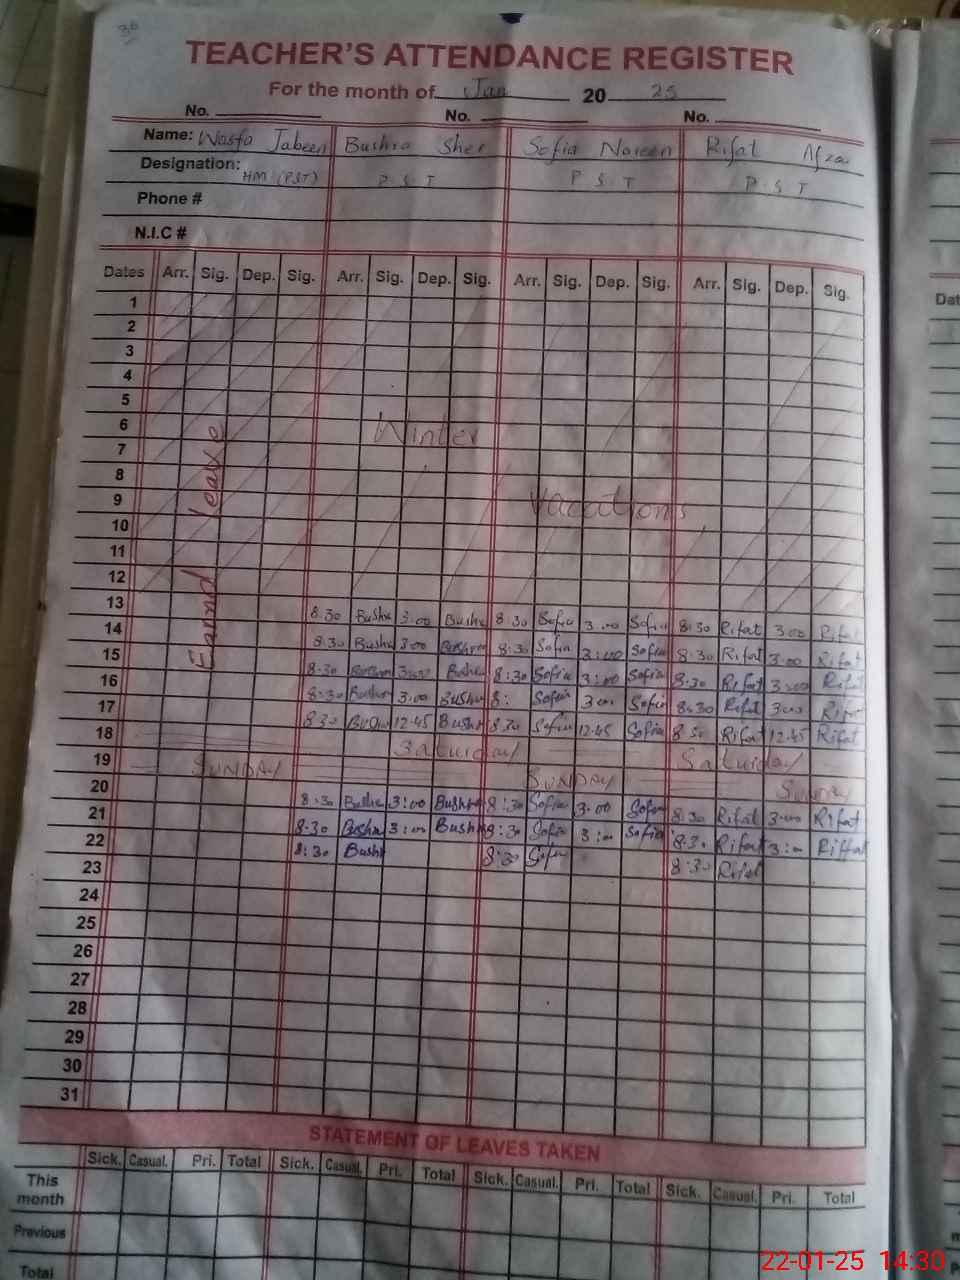 36
TEACHER'S ATTENDANCE REGISTER
For the month of Jan 20 25
No. No. No.
Name: Wasfa Jabeen Bushra Sher Sofia Noreen Rifat Afzal
Designation: HM (PST) P.S.T P.S.T P.S.T
Phone #
N.I.C #
Dates Arr. Sig. Dep. Sig. Arr. Sig. Dep. Sig. Arr. Sig. Dep. Sig. Arr. Sig. Dep. Sig.
1
2
3
4
5
6 Winter
7
8
9 vacations
10
11
12
Earned leave
13 8.30 Bushra 3.00 Bushra 8.30 Sofia 3.00 Sofia 8:30 Rifat 3.00 Rifat
14 8.30 Bushra 3.00 Bushra 8:30 Sofia 3:00 Sofia 8.30 Rifat 3.00 Rifat
15 8.30 Bushra 3.00 Bushra 8:30 Sofia 3:00 Sofia 8:30 Rifat 3:00 Rifat
16 8:30 Bushra 3.00 Bushra 8: Sofia 3.00 Sofia 8:30 Rifat 3.00 Rifat
17 8.30 Bushra 12.45 Bushra 8.30 Sofia 12.45 Sofia 8.30 Rifat 12.45 Rifat
18 Saturday Saturday
19 SUNDAY SUNDAY SUNDAY
20 8.30 Bushra 3:00 Bushra 8:30 Sofia 3.00 Sofia 8:30 Rifat 3.00 Rifat
21 8.30 Bushra 3:00 Bushra 8:30 Sofia 3:00 Sofia 8.30 Rifat 3:00 Riffat
22 8:30 Bushr 8:30 Sofia 8:30 Rifat
23
24
25
26
27
28
29
30
31
STATEMENT OF LEAVES TAKEN
Sick. Casual. Pri. Total Sick. Casual. Pri. Total Sick. Casual. Pri. Total Sick. Casual. Pri. Total
This month
Previous
Total
Dat
22-01-25 14:30